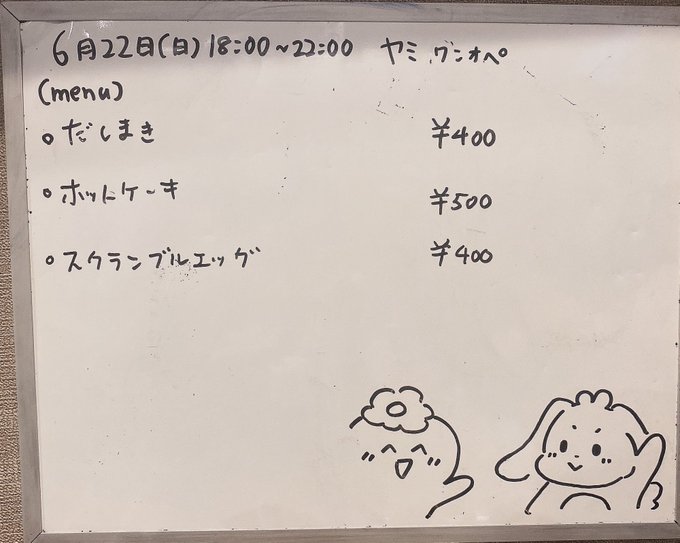 6月22日(日)18:00~22:00 ヤミ、グンオペ
(menu)
○だしまき ¥400
○ホットケーキ ¥500
○スクランブルエッグ ¥400